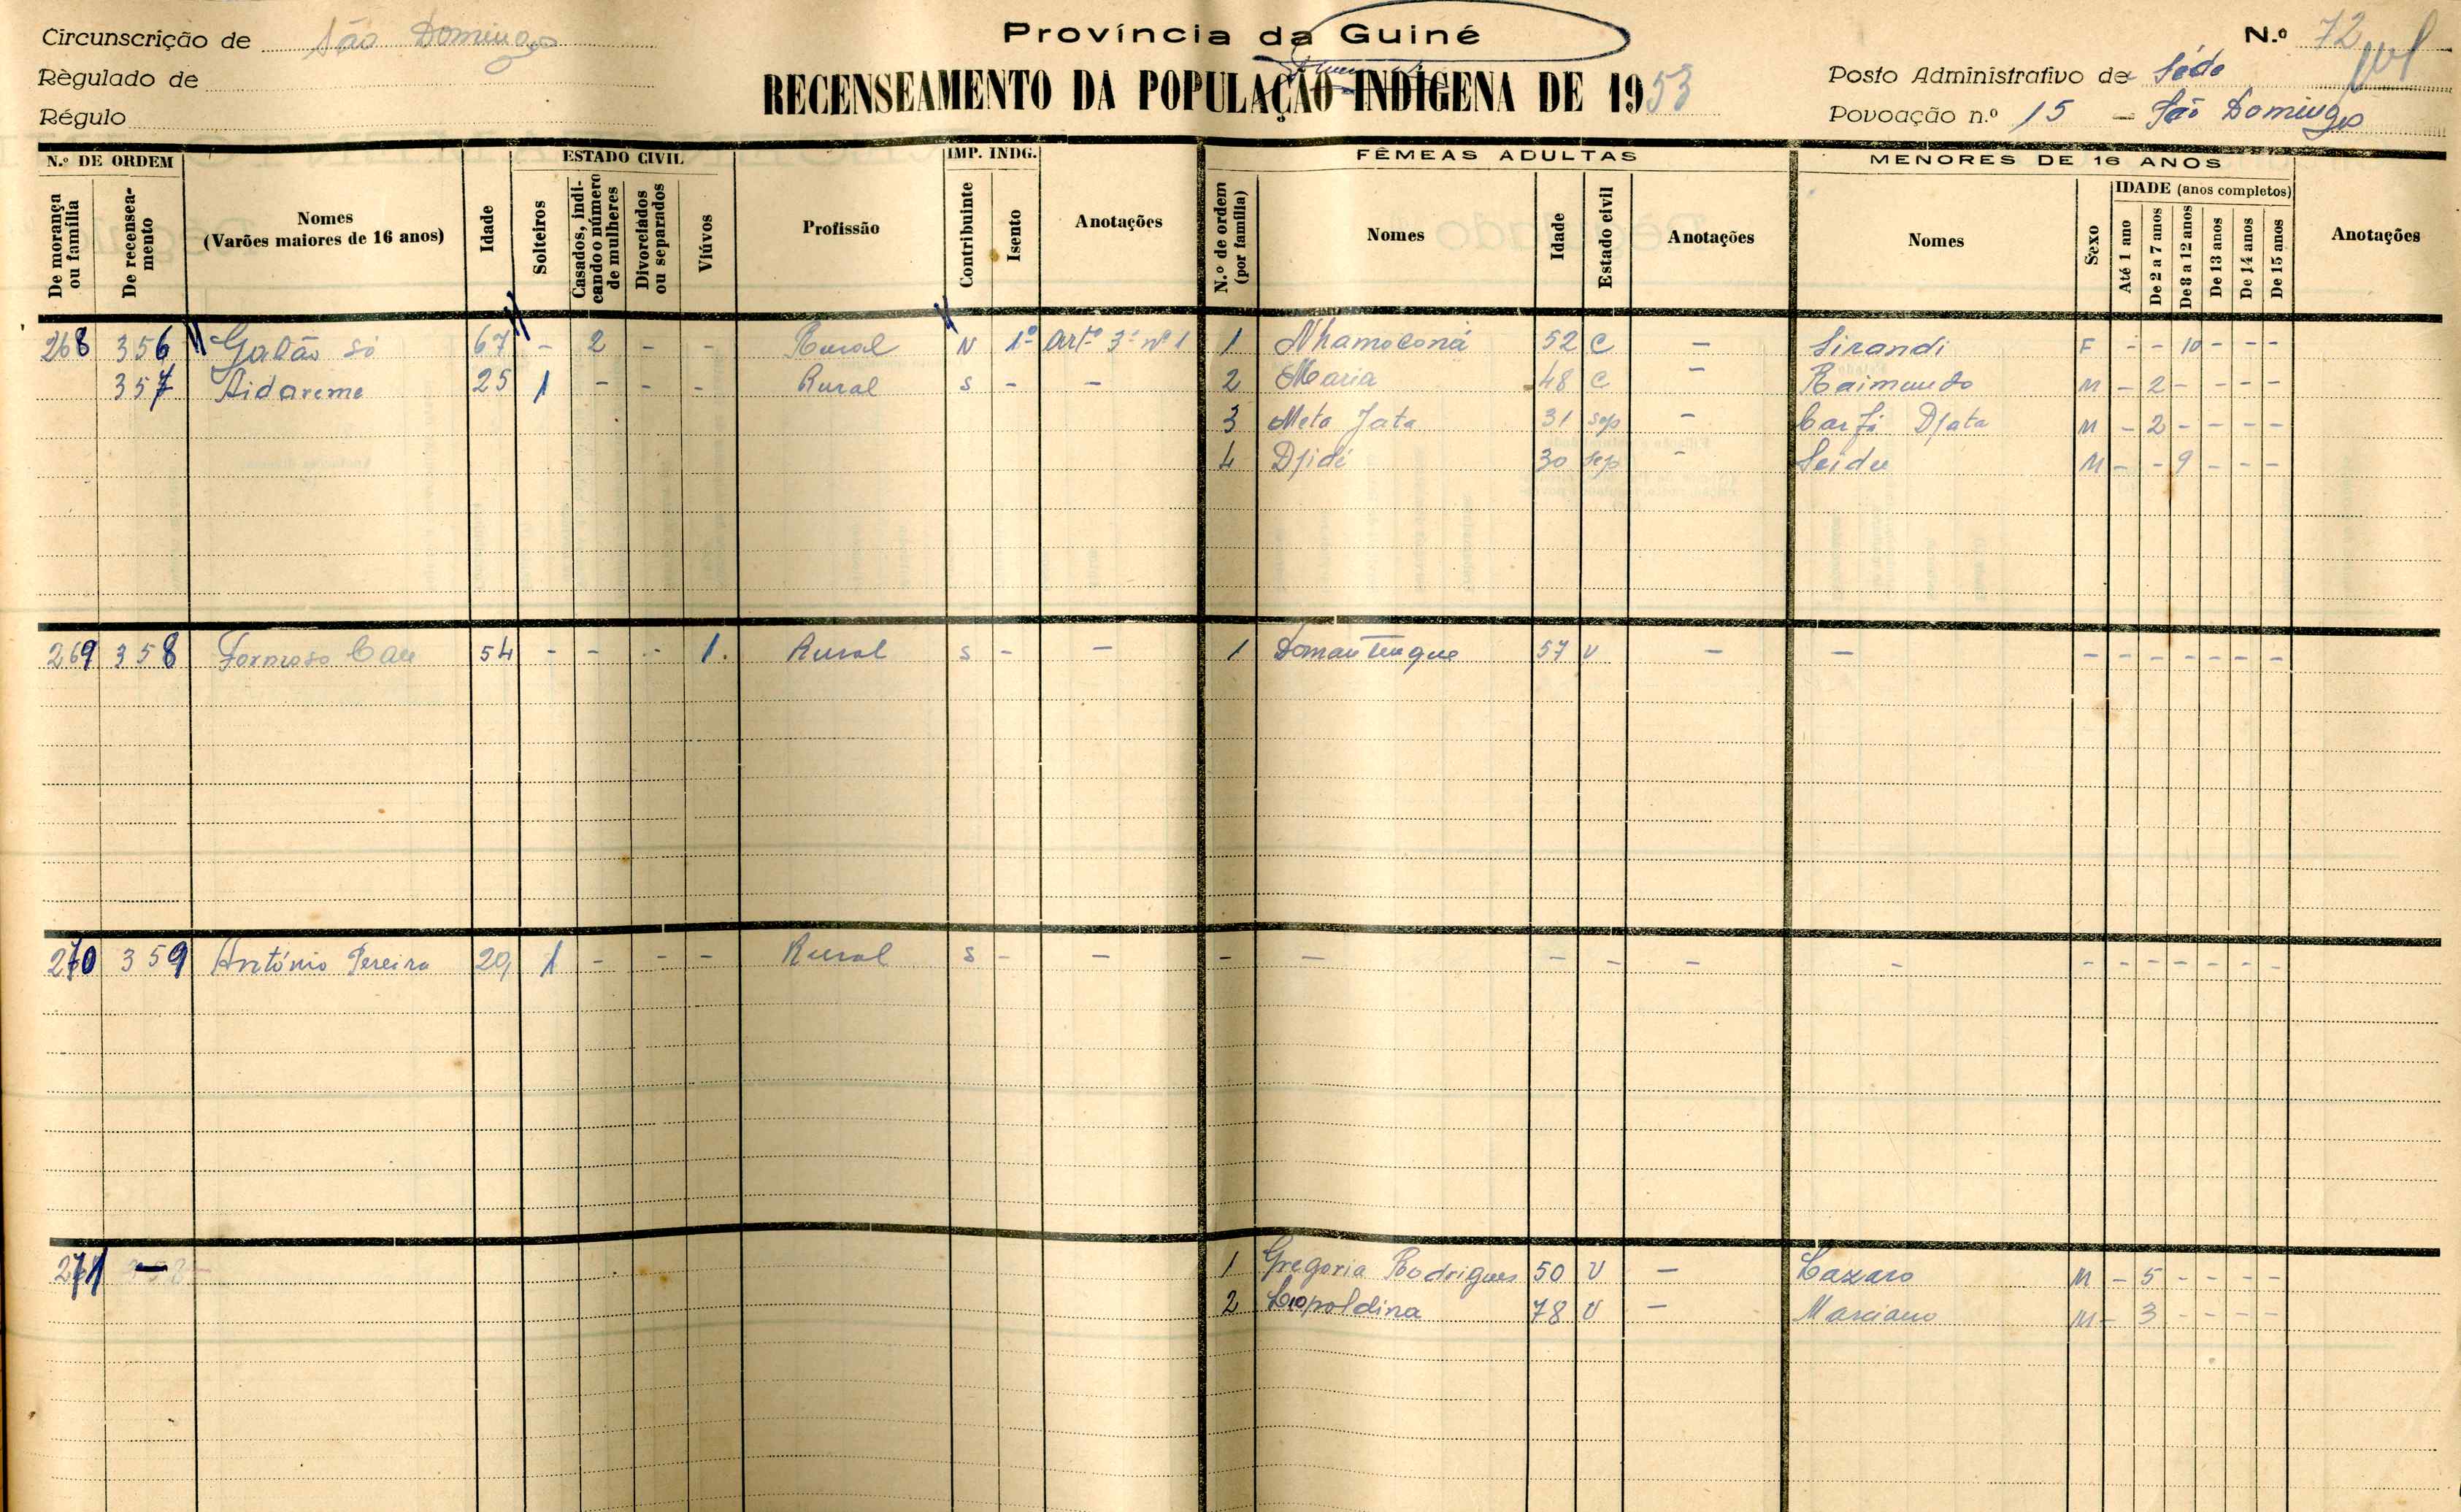 Circunscrição de São Domingos
Règulado de
Régulo
Província da Guiné
RECENSEAMENTO DA POPULAÇÃO INDÍGENA DE 1953
N.º 72
Posto Administrativo de Séde
Povoação n.º 15 - São Domingos
N.º DE ORDEM
De morança ou família
De recenseamento
Nomes
(Varões maiores de 16 anos)
Idade
ESTADO CIVIL
Solteiros
Casados, indicando número de mulheres
Divorciados ou separados
Viúvos
Profissão
IMP. INDG.
Contribuinte
Isento
Anotações
FÊMEAS ADULTAS
N.º de ordem (por família)
Nomes
Idade
Estado civil
Anotações
MENORES DE 16 ANOS
Nomes
Sexo
IDADE (anos completos)
Até 1 ano
De 2 a 7 anos
De 8 a 12 anos
De 13 anos
De 14 anos
De 15 anos
Anotações
268 356 Galão Só 67 - 2 - - Rural N 1º artº 3º nº 1 1 Nhamoconá 52 C - Sirandi F - - 10 - - -
357 Aidareme 25 1 - - - Rural S - - 2 Maria 48 C - Raimundo M - 2 - - - -
3 Meta Jata 31 sep - Carfá Djata M - 2 - - - -
4 Djidi 30 sep - Seidu M - - 9 - - -
269 358 Formoso Cau 54 - - - 1 Rural S - - 1 Domantengue 57 V - - - - - - - - -
270 359 António Pereira 29 1 - - - Rural S - - - - - - - - - - - - - - -
271 - 1 Gregoria Rodrigues 50 V - Lazaro M - 5 - - - -
2 Leopoldina 78 V - Marciano M - 3 - - - -